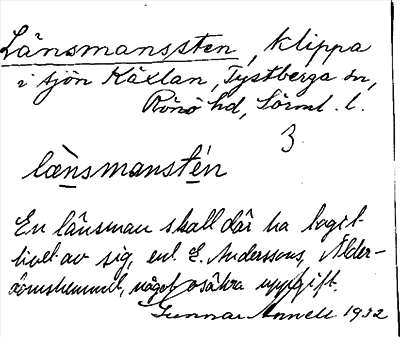 Länsmanssten, klippa
i sjön Käxlan, Tystberga sn,
Rönö hd, Sörml. l.
3
læ̀nsmanstén
En länsman skall där ha tagit
livet av sig, enl. E. Anderssons, Ålder-
domshemmet, något osäkra uppgift.
Gunnar Annell 1932